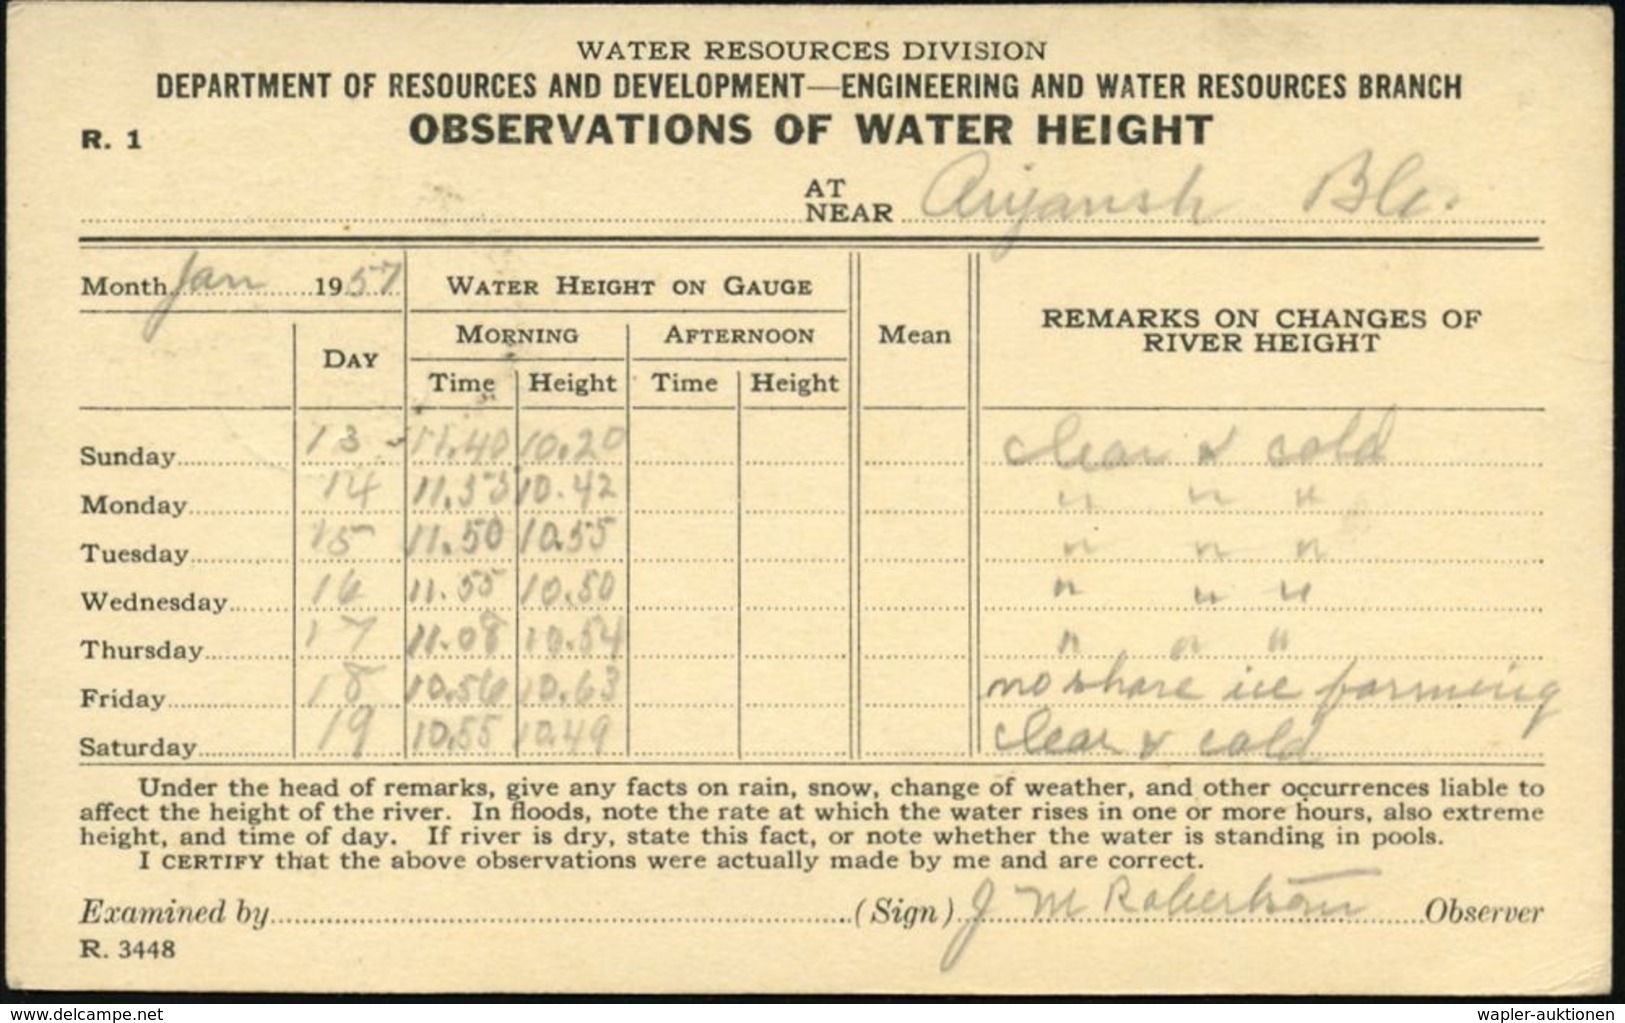 WATER RESOURCES DIVISION
DEPARTMENT OF RESOURCES AND DEVELOPMENT—ENGINEERING AND WATER RESOURCES BRANCH
R. 1 OBSERVATIONS OF WATER HEIGHT
AT
NEAR Aiyansh B.C.
Month Jan 1957 WATER HEIGHT ON GAUGE
DAY MORNING AFTERNOON Mean REMARKS ON CHANGES OF
RIVER HEIGHT
Time Height Time Height
Sunday 13 11.40 10.20 clear & cold
Monday 14 10.42 " " "
Tuesday 15 11.50 10.55 " " "
Wednesday 16 11.55 10.50 " " "
Thursday 17 11.08 10.54 " " "
Friday 18 10.56 10.63 no shore ice forming
Saturday 19 10.55 10.49 clear & cold
Under the head of remarks, give any facts on rain, snow, change of weather, and other occurrences liable to
affect the height of the river. In floods, note the rate at which the water rises in one or more hours, also extreme
height, and time of day. If river is dry, state this fact, or note whether the water is standing in pools.
I CERTIFY that the above observations were actually made by me and are correct.
Examined by (Sign) J M Robertson Observer
R. 3448
www.delcampe.net wapler-auktionen